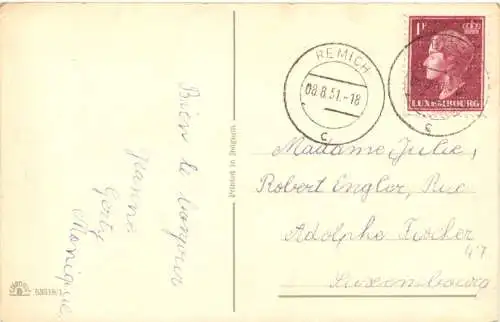 Bien le bonjour
Jeanne
Gerty
Monique
Printed in Belgium
REMICH
08.8.51.-18
c
1F
LUXEMBOURG
c
Madame Julie,
Robert Engler, Rue
Adolphe Fischer
47
Luxembourg